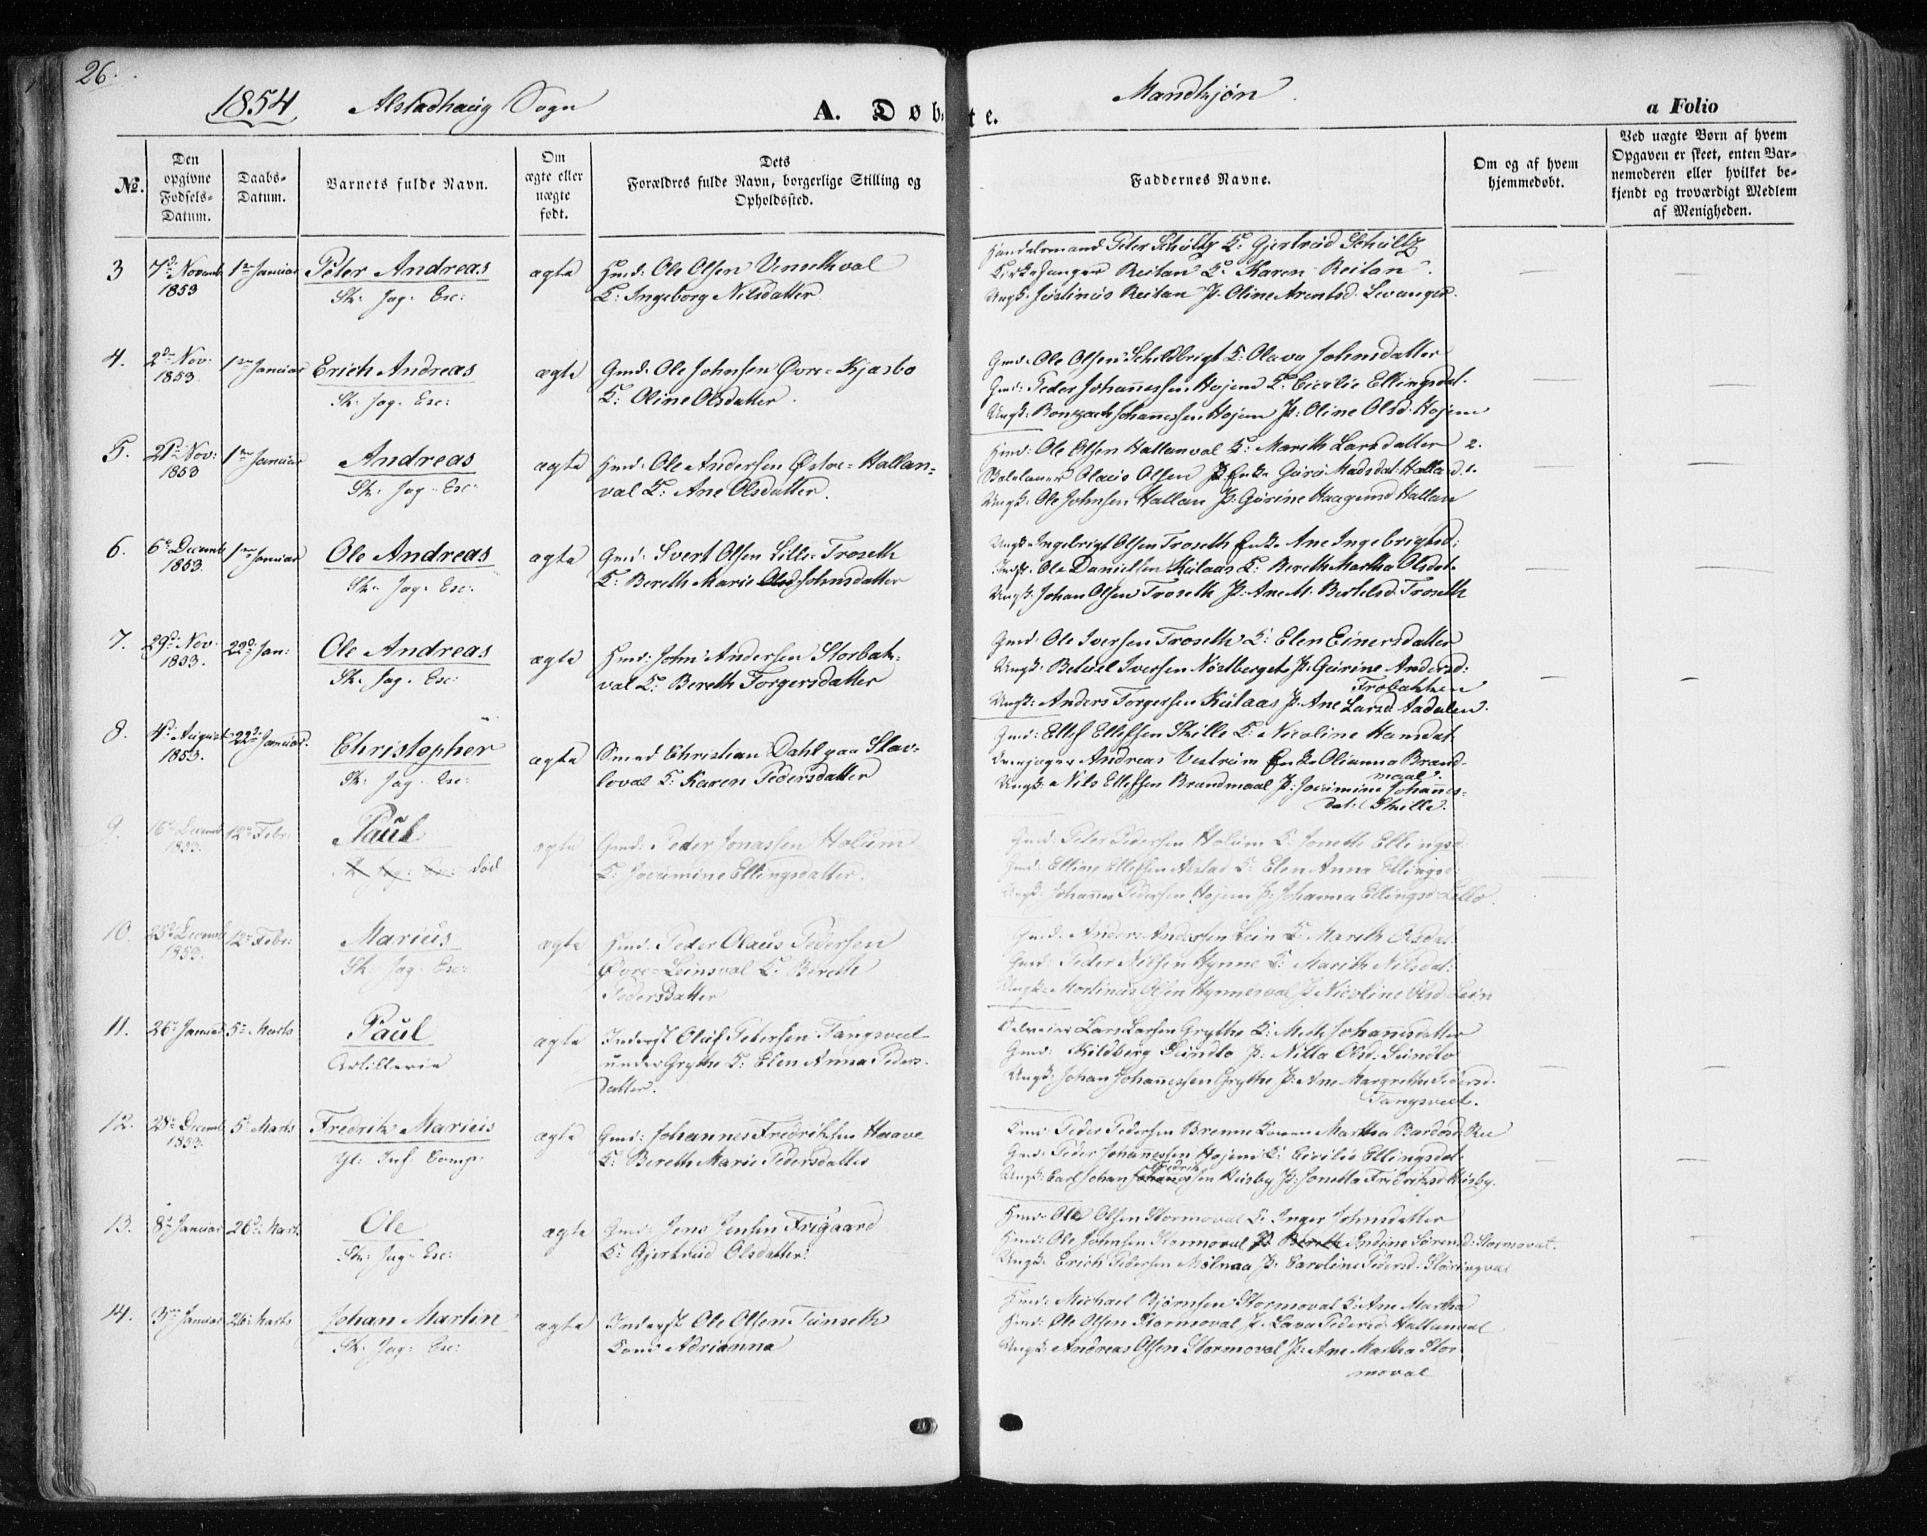 26.
1854 Alstadhaug Sogn
A. Døbte.
Mandkjøn.
a Folio
No.
Den opgivne Fødsels-Datum.
Daabs-Datum.
Barnets fulde Navn.
Om ægte eller uægte født.
Dets Forældres fulde Navn, borgerlige Stilling og Opholdssted.
Faddernes Navne.
Om og af hvem hjemmedøbt.
Ved uægte Børn af hvem Opgaven er skeet, enten Barnemoderen eller hvilket bekjendt og troværdigt Medlem af Menigheden.
3 7de Novemb 1853 1ste Januar Peter Andreas ægte Hmd: Ole Olsen Vensethval
Sk: Jag: Esc: K: Ingeborg Nilsdatter
Handelsmand Peter Schultz K: Gjertrud Schultz
Kirkesanger Reitan K: Karen Reitan
Ungk: Justinus Reitan P: Oline Arentsd. Levanger.
4. 2den Nov: 1853. 1ste Januar Erich Andreas ægte Gmd: Ole Johnsen Øvre-Kjæsbo
Sk: Jag: Esc: K: Oline Olsdatter.
Gmd: Ole Olsen Schildbrigt K: Olava Johnsdatter
Gmd: Peder Johannessen Hojem K: Cicilie Ellingsdat.
Ungk: Johannessen Hojem P: Oline Olsd. Hojem
5. 21de Nov: 1853 1ste Januar Andreas ægte Hmd: Ole Andersen Østre-Hallan-
Sk: Jag: Esc: val K: Ane Olsdatter.
Hmd: Ole Olsen Hallanval K: Marith Larsdatter 2.
Olaus Olsen P: Enke Guru Madsdat: Halland 1.
Ungk: Ole Johnsen Hallan P: Gurine Haagensd Hallan
6. 6te Decemb 1853. 1ste Januar Ole Andreas ægte Gmd: Svert Olsen Lille-Troseth
Sk: Jag: Esc: K: Bereth Marie Olsd Johnsdatter
Ungk: Ingebrigt Olsen Troseth Enke Ane Ingebrigtsd:
Indst: Ole Danielsen Kulaas K: Bereth Martha Olsdat.
Ungk: Johan Olsen Troseth P: Ane M. Bertelsd. Troseth
7. 29de Nov. 1853. 22de Jan: Ole Andreas ægte Hmd: John Andersen Storbak-
Sk: Jag: Esc: val K: Bereth Torgersdatter
Gmd: Ole Iversen Troseth K: Elen Einersdatter
Ungk: Betuel Iversen Nøstberget P: Gurine Andersd:
Trobakken
Ungk: Anders Torgersen Kulaas P: Ane Larsd. Aadalen.
8. 4de August 1853. 22de Januar. Christopher ægte Smed Christian Dahl paa Slav-
Sk: Jag: Esc: loval K: Karen Pedersdatter
Gmd: Ellef Ellefsen Skille K: Nicoline Hansdat
Andreas Vestrum Enke Olianna Brand-
maal.
Ungk: Nils Ellefsen Brandmaal P: Jocumine Johannes-
dat: Skille.
9. 16de Decemb 1853. 12te Febr: Paul ægte Gmd: Peder Jonassen Holum
Sk: Jag: Esc: død K: Jocumine Ellingsdatter.
Gmd: Peter Pedersen Holum K: Jonette Ellingsd:
Gmd: Elling Ellefsen Alstad K: Elen Anna Ellingsd:
Ungk: Johannes Pedersen Hojem P: Johanna Ellingsd.
10. 25de Decemb 1853. 12te Febr: Marius ægte Hmd: Peder Olaus Pedersen
Sk: Jag: Esc: Øvre-Leinsval K: Bereth
Pedersdatter
Gmd: Anders Andersen Lein K: Marith Olsdat.
Gmd: Peder Nilsen Hynne K: Marith Nilsdat:
Ungk: Martinus Olsen Hynnesval P: Nicoline Olsd. Lein
11. 26de Januar 5te Marts Paul ægte Inderst Oluf Petersen Tangsveet
Artillerie under Grythe K: Elen Anna Peders-
datter.
Lars Larsen Grythe K: Johannesdatter
Gmd: Leindlo P: Olsd.
Ungk: Johan Johannessen Grythe P: Ane Margrethe Pedersd.
Tangsveet.
12. 28de Decemb 1853. 5te Marts Fredrik Marius ægte Gmd: Johannes Fredriksen Haave
Inf: Comp: K: Bereth Marie Pedersdatter
Peder Pedersen Brenne Konen Martha Bardosd. Ree
Gmd: Peder Johannessen Hojem K: Cicilie Ellingsdat.
Fredrik
Ungk: Carl Johan Johannessen Husby P: Jonetta Fredriksd. Husby.
13. 8de Januar 26de Marts Ole ægte Gmd: Jens Jensen Frigaard
Sk: Jag: Esc: K: Gjertrud Olsdatter.
Hmd: Ole Olsen Stormoval K: Inger Johnsdatter
Hmd: Ole Johnsen Stormoval P: Bereth Andine Sørensd: Stormoval.
Ungk: Erich Pedersen Molnaa P: Caroline Pedersd.
14. 3die Januar 26de Marts Johan Martin ægte Inderst Ole Olsen Tunseth
Sk: Jag: Esc: Kone Adrianna
Hmd: Michael Bjørnsen Stormoval K: Ane Martha
Hmd: Ole Olsen Stormoval P: Lava Pedersd. Hallanval
Ungk: Andreas Olsen Stormoval P: Ane Martha Stor-
moval